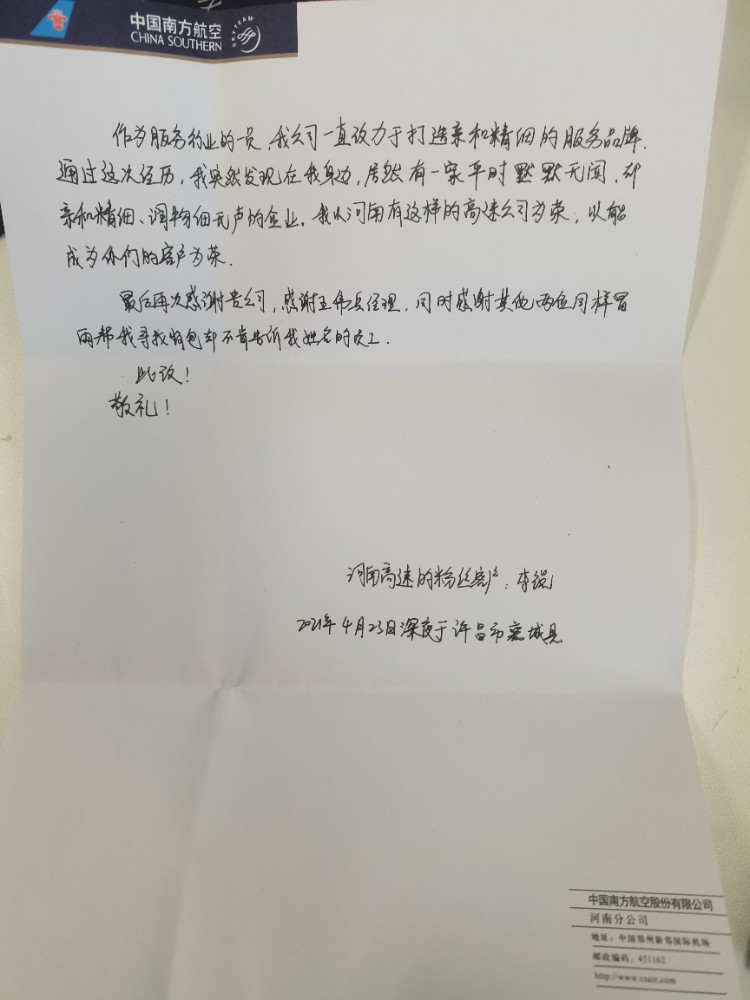 中国南方航空
CHINA SOUTHERN
SKYTEAM
作为服务行业的一员，我公司一直致力于打造亲和精细的服务品牌.
通过这次经历，我突然发现在我身边，居然有一家平时默默无闻，却
亲和精细、润物细无声的企业。我以河南有这样的高速公司为荣，以能
成为你们的客户为荣.
最后再次感谢贵公司，感谢王伟兵经理，同时感谢其他两位同样冒
雨帮我寻找钱包却不肯告诉我姓名的员工.
此致！
敬礼！
河南高速的粉丝客户：李锐
2021年4月23日深夜于许昌市襄城县
中国南方航空股份有限公司
河南分公司
地址：中国郑州新郑国际机场
邮政编码：451162
http://www.csair.com